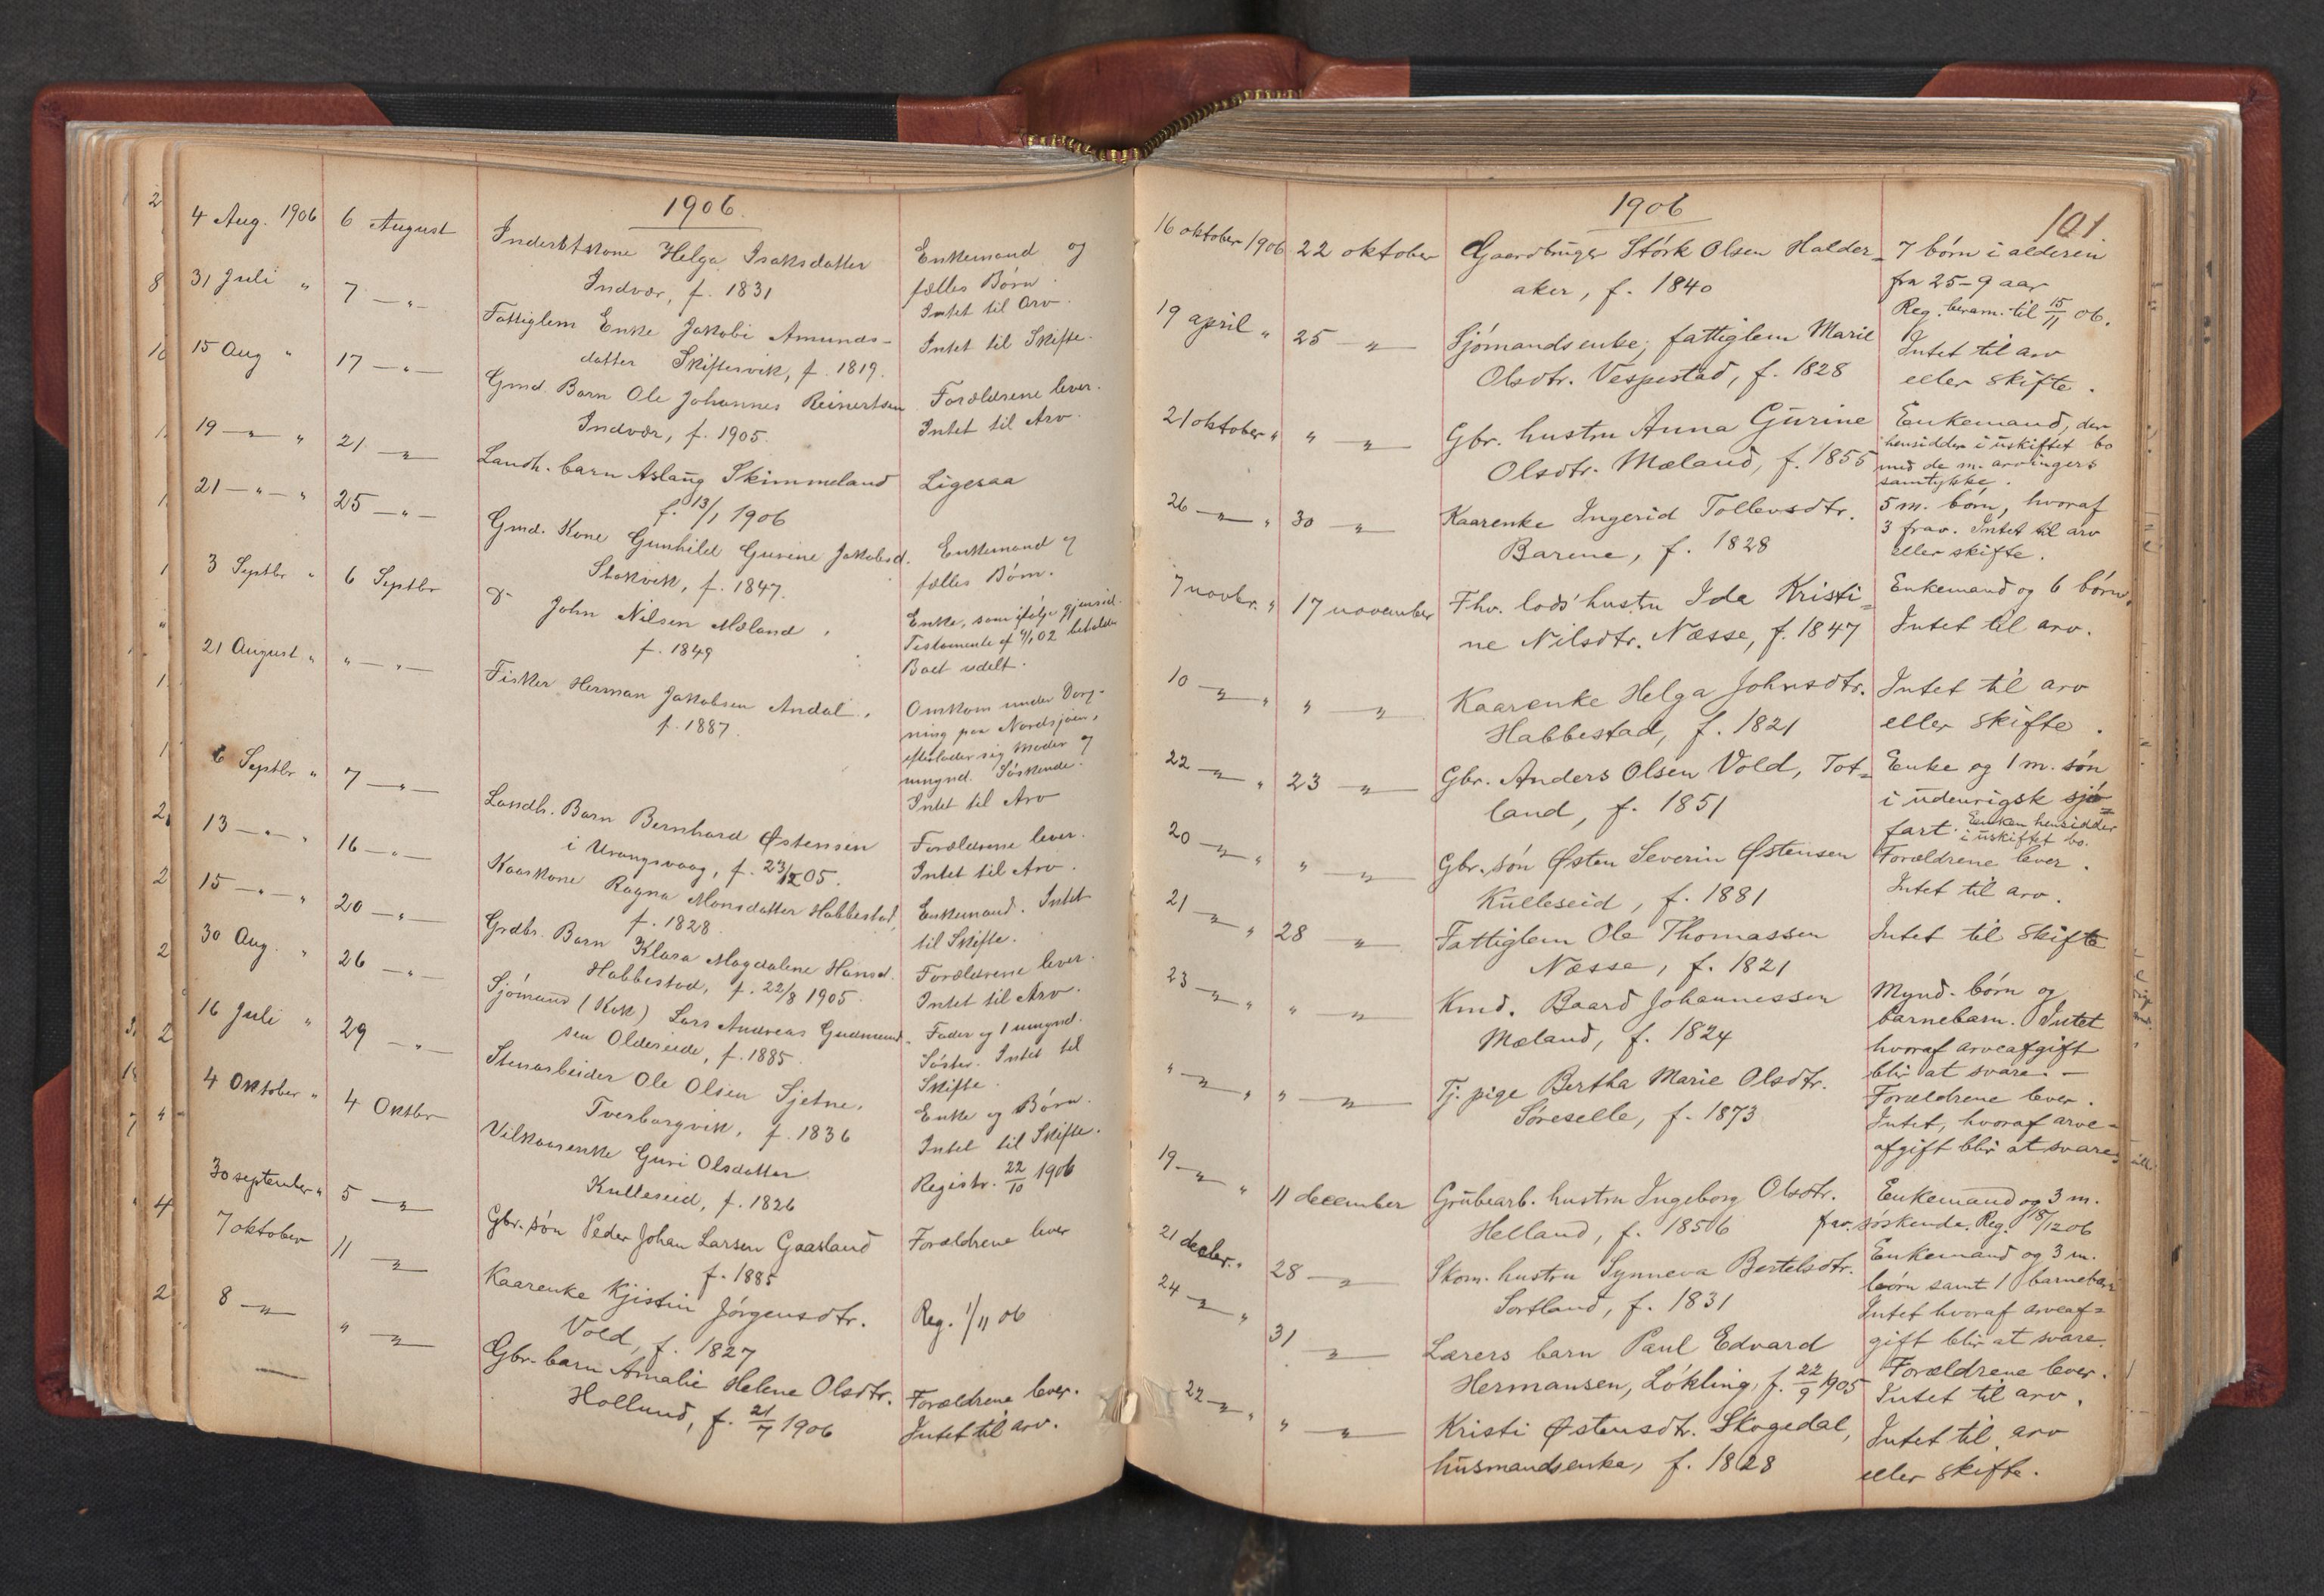 1906.
4 Aug. 1906 6 August Inderstkone Helga Isaksdatter Enkemand og
Indvær, f. 1831 fælles Børn.
Intet til Arv.
31 Juli " 7 —"— Fattiglem Enke Jakobi Amunds- Intet til Skifte.
datter Skiftesvik, f. 1819.
15 Aug " 17 —"— Gmd. Barn Ole Johannes Reinertsen Forældrene lever.
Indvær, f. 1905. Intet til Arv.
19 —"— " 21 —"— Landh. barn Aslaug Skimmeland Ligesaa
f. 13/1 1906
21 —"— " 25 —"— Gmd. Kone Gunhild Gurine Jakobsd. Enkemand og
Stokvik, f. 1847. fælles Børn.
3 Septbr " 6 Septbr John Nilsen Mæland, Enke, som ifølge gjensid.
f. 1849 Testamente af 02 beholder
Boet udelt.
21 August " " —"— Fisker Herman Jakobsen Andal, Omkom under Dorg-
f. 1887. ning paa Nordsjøen,
efterlader sig Moder og
umynd. Søskende.
Intet til Arv
6 Septbr " 7 —"— Landh. Barn Bernhard Østensen Forældrene lever.
i Urangsvaag, f. 23/12 05. Intet til Arv.
13 —"— " 16 —"— Kaarkone Ragna Monsdatter Habbestad, Enkemand. Intet
f. 1828. til Skifte.
15 —"— " 20 —"— Grdbr. Barn Klara Magdalene Hansd. Forældrene lever.
Habbestad, f. 22/8 1905. Intet til Arv.
30 Aug. " 26 —"— Sjømand (Kok) Lars Andreas Gudmund- Fader og 1 umynd.
sen Oldereide, f. 1885. Søster. Intet til
Skifte.
16 Juli " 29 —"— Stenarbeider Ole Olsen Sjetne, Enke og Børn.
Tverborgvik, f. 1836 Intet til Skifte.
4 Oktober " 4 Oktbr Vilkaarenke Guri Olsdatter Registr. 22/10 1906
Kulleseid, f. 1826
30 september " 5 —"— Gbr. søn Peder Johan Larsen Gaasland Forældrene lever
f. 1885
7 oktober 11 —"— Kaarenke Kjistin Jørgensdtr. Reg. 1/11 06
Vold, f. 1827
8 —"— " —"— Gbr. barn Amalie Helene Olsdtr. Forældrene lever.
Hollund, f. 21/7 1906 Intet til arv.
1906
101
16 oktober 1906 22 oktober Gaardbruger Størk Olsen Halder- 7 børn i alderen
aker, f. 1840 fra 25-9 aar
Reg. beram. til 15/11 06.
19 april " 25 —"— Sjømandsenke, fattiglem Marie Intet til arv
Olsdtr. Vespestad, f. 1828 eller skifte.
21 oktober " " —"— Gbr. hustru Anna Gurine Enkemand, der
Olsdtr. Mæland, f. 1855 hensidder i uskiftet bo
med de m. arvingers
samtykke.
26 —"— " 30 —"— Kaarenke Ingerid Tollevsdtr. 5 m. børn, hvoraf
Barene, f. 1828 3 frav. Intet til arv
eller skifte.
7 novbr. " 17 november Fhv. lods' hustru Ida Kristi- Enkemand og 6 børn.
ne Nilsdtr. Næsse, f. 1847 Intet til arv.
10 —"— " " —"— Kaarenke Helga Johnsdtr. Intet til arv
Habbestad, f. 1821 eller skifte.
22 —"— " 23 —"— Gbr. Anders Olsen Vold, Tot- Enke og 1 m. søn
land, f. 1851 i udenrigsk sjø-
fart. Enken hensidder
i uskiftet bo.
20 —"— " " —"— Gbr. søn Østen Severin Østensen Forældrene lever.
Kulleseid, f. 1881 Intet til arv.
21 —"— " 28 —"— Fattiglem Ole Thomassen Intet til skifte
Næsse, f. 1821
23 —"— " " —"— Kmd. Baard Johannessen Mynd. børn og
Mæland, f. 1824 barnebarn. Intet
hvoraf arveafgift
blir at svare. —
" —"— " " —"— Tj. pige Bertha Marie Olsdtr. Forældrene lever.
Søreselle, f. 1873 Intet, hvoraf arve-
afgift blir at svare.
19 —"— " 11 december Grubearb. hustru Ingeborg Olsdtr. Enkemand og 3 m.
Helland, f. 1856 frav. søskende. Reg. 18/12 06
21 decbr. " 28 —"— Skom. hustru Synneva Bertelsdtr. Enkemand og 3 m.
Sortland, f. 1831 børn samt 1 barnebarn
Intet hvoraf arveaf-
gift blir at svare.
24 —"— " 31 —"— Lærers barn Paul Edvard Forældrene lever.
Hermansen, Løkling, f. 22/9 1905 Intet til arv.
22 —"— " " —"— Kristi Østensdtr. Skogedal, Intet til arv
husmandsenke, f. 1828 eller skifte.